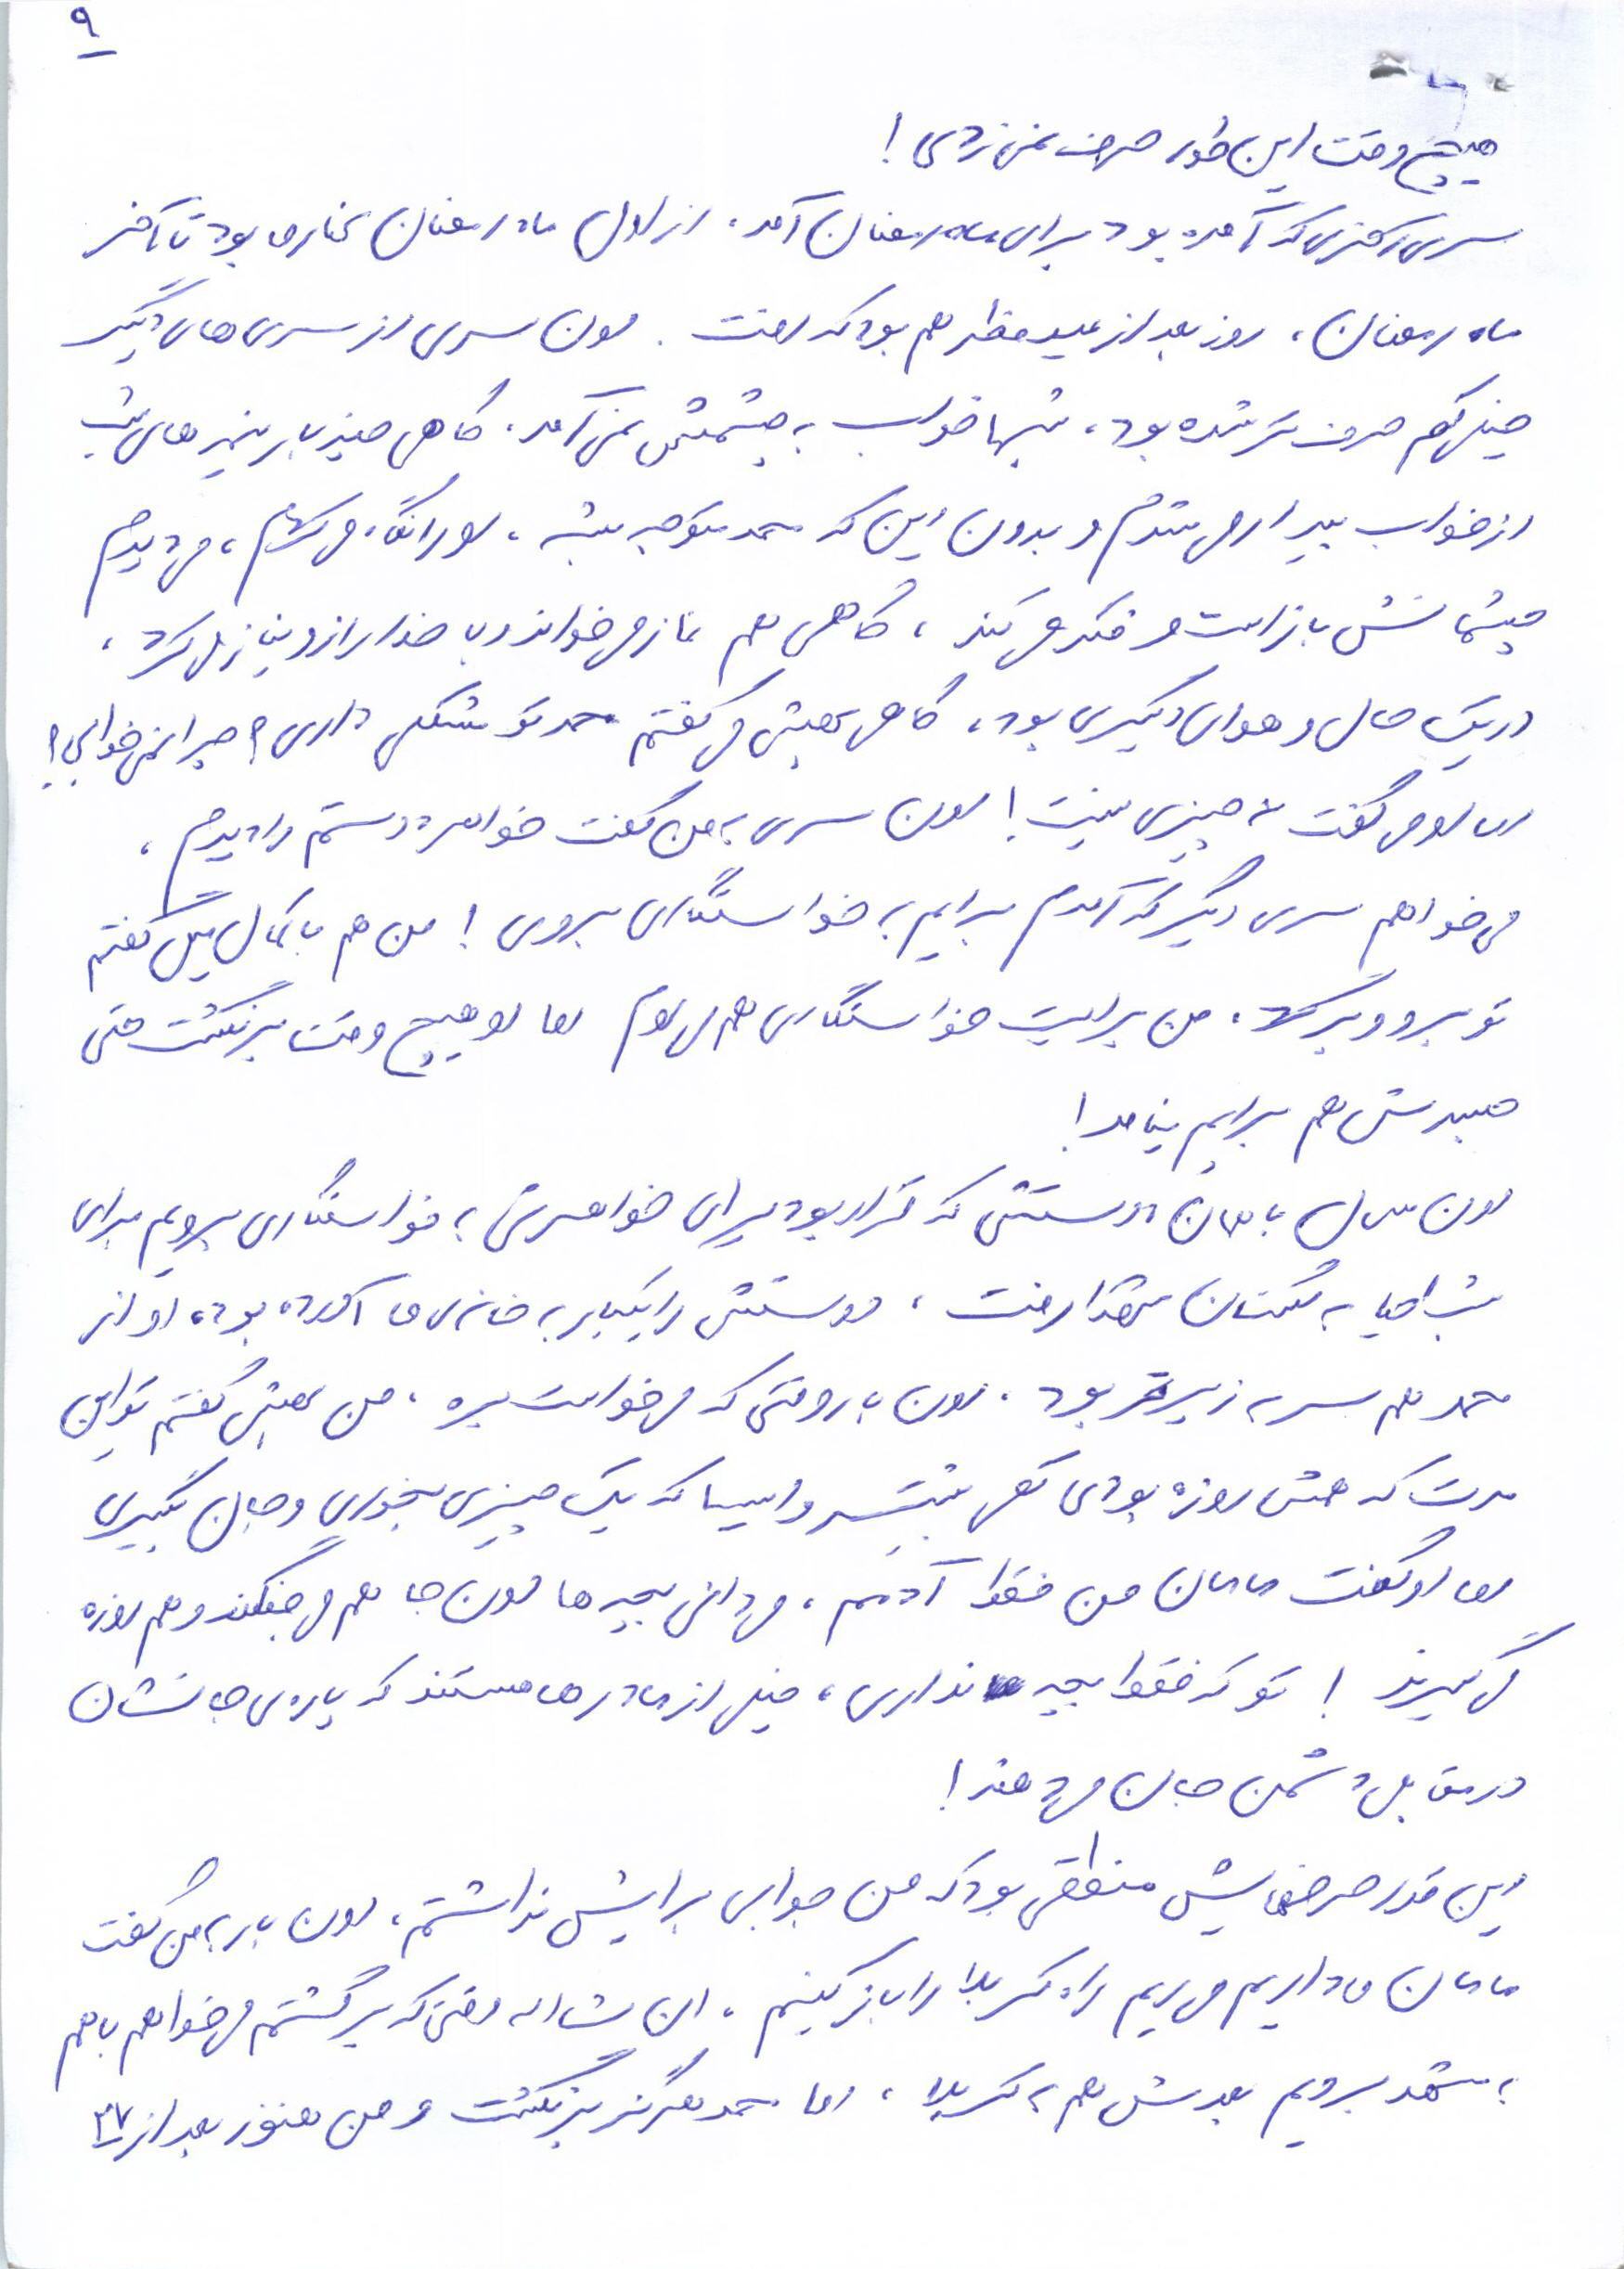 ۹
هیچ وقت این طور حرف نمی زدی!
سری آخری که آمده بود برای ماه رمضان آمد، از اول ماه رمضان کنار ما بود تا آخر
ماه رمضان، روز بعد از عید فطر هم بود که رفت. اون سری از سری های دیگر
خیلی کم حرف تر شده بود، شبها خواب به چشمش نمی آمد، گاهی چند بار نیمه های شب
از خواب بیدار می شدم و بدون این که محمد متوجه بشه، او را نگاه می کردم، می دیدم
چشمانش باز است و فکر می کند، گاهی هم نماز می خواند و با خدا راز و نیاز می کرد،
در یک حال و هوای دیگری بود، گاهی بهش می گفتم محمد تو مشکلی داری؟ چرا نمی خوابی؟
اما او می گفت نه چیزی نیست! اون سری به من گفت خواهر دوستم را دیدم،
می خواهم سری دیگر که آمدم برایم به خواستگاری بروی! من هم با کمال میل گفتم
تو برو و برگرد، من برایت خواستگاری هم می روم اما او هیچ وقت برنگشت حتی
جسدش هم برایم نیامد!
اون سال با همان دوستش که قرار بود برای خواهرش به خواستگاری برویم برای
شب احیا به گلستان شهدا رفت، دوستش را یکبار به خانه ی ما آورده بود، او از
محمد هم سر به زیرتر بود. اون بار وقتی که می خواست بره، من بهش گفتم تو این
مدت که همش روزه بودی کمی بیشتر وایسا که یک چیزی بخوری و جان بگیری
اما او گفت مامان من فقط آدمم، می دانی بچه ها اون جا هم می جنگند و هم روزه
می گیرند! تو که فقط بچه نداری، خیلی از مادرها هستند که پاره ی جانشان
در مقابل دشمن جان می دهند!
این قدر حرفهایش منطقی بود که من جوابی برایش نداشتم، اون بار به من گفت
مامان ما داریم می ریم راه کربلا را باز کنیم، ان شاء اله وقتی که برگشتم می خواهم با هم
به مشهد برویم بعدش هم به کربلا، اما محمد هرگز برنگشت و من هنوز بعد از ۳۷